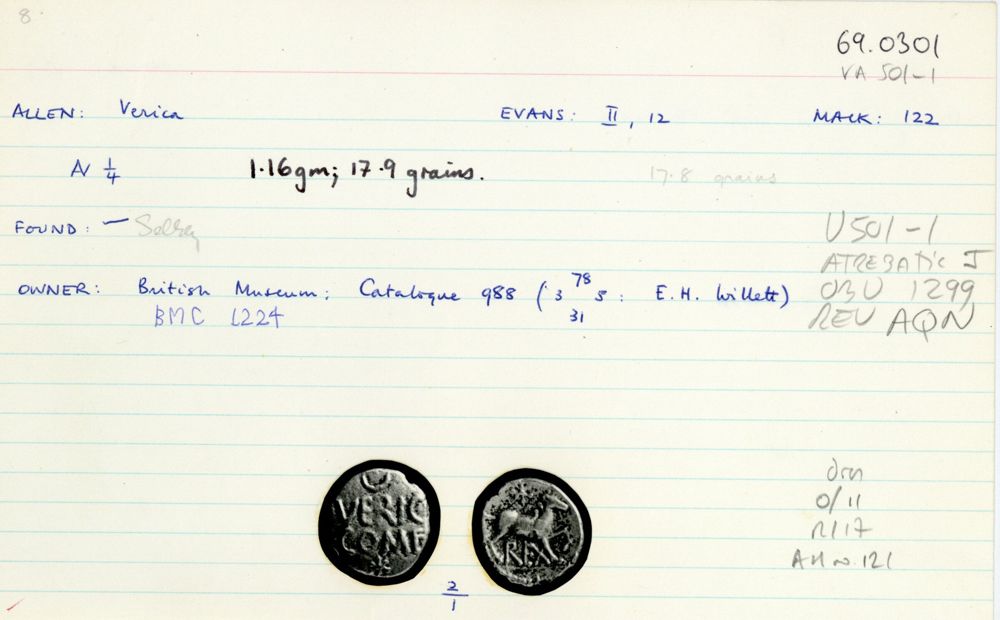 8
69.0301
VA 501-1
ALLEN: Verica EVANS: II, 12 MACK: 122
AV 1/4 1.16gm; 17.9 grains. 17.8 grains
FOUND: — Selsey
V501-1
ATREBATIC J
OWNER: British Museum: Catalogue 988 (3 78/31 5: E.H. Willett) OBV 1299
BMC 1224 REV AQN
VERIC
COMF
REX
O/11
R/17
2/1